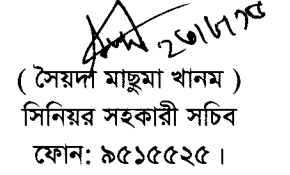 ২৩/৮/১৫
( সৈয়দা মাছুমা খানম )
সিনিয়র সহকারী সচিব
ফোন: ৯৫১৫৫২৫।